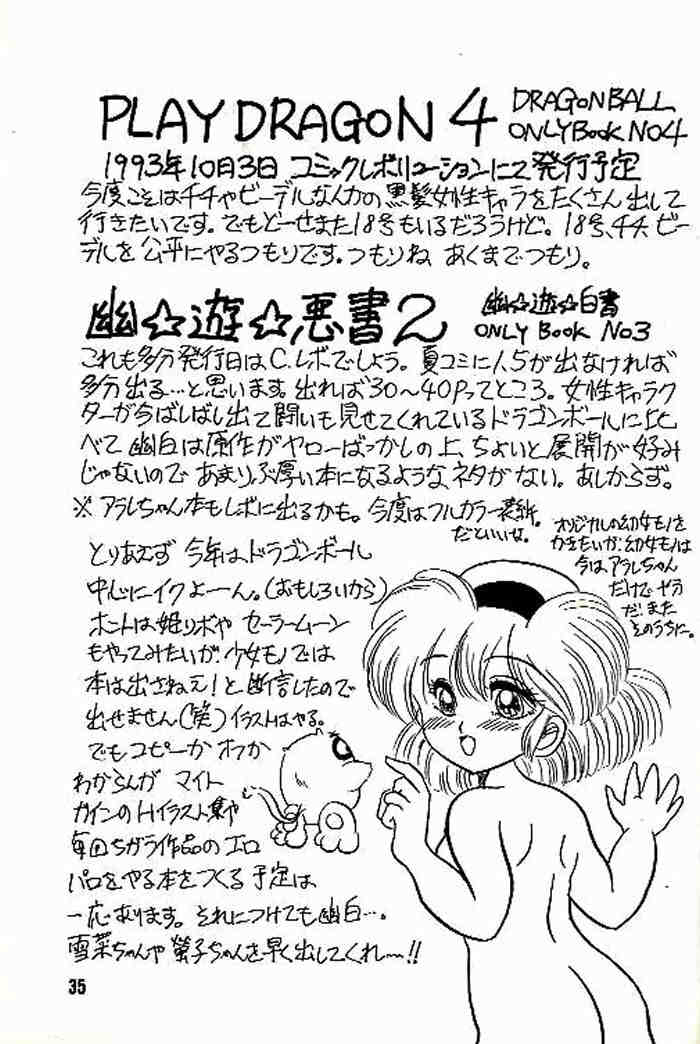 PLAY DRAGON 4
DRAGON BALL
ONLY Book NO4
1993年10月3日 コミックレボリューションにて発行予定
今度こそはチチやビーデルなんかの黒髪女性キャラをたくさん出して
行きたいです。でもどーせまた18号もいるだろうけど。18号、チチ、ビー
デルを公平にやるつもりです。つもりね、あくまでつもり。
幽☆遊☆悪書2
幽☆遊☆白書
ONLY Book No.3
これも多分発行日はC.レボでしょう。夏コミに1.5が出なければ
多分出る…と思います。出れば30〜40Pってところ。女性キャラク
ターが今ばしばし出て闘いも見せてくれているドラゴンボールに比
べて幽白は原作がヤローばっかしの上、ちょいと展開が好み
じゃないのであまりぶ厚い本になるようなネタがない。あしからず。
※アラレちゃん本もレボに出るかも。今度はフルカラー表紙。
だといいな。
オリジナルの幼女モノを
かきたいが、幼女モノは
今は、アラレちゃん
だけでせう
だ!また
そのうちに。
とりあえず今年は、ドラゴンボール
中心にイクよーん。(おもしろいから)
ホントは姫リボや セーラームーン
もやってみたいが、少女モノでは
本は出さねえ!と断言したので
出せません(笑)イラストはやる。
でもコピーか オフか
わからんが マイト
ガインのHイラスト集や
毎回ちがう作品のエロ
パロをやる本をつくる予定は
一応あります。それにつけても幽白…。
雪菜ちゃんや螢子ちゃんを早く出してくれ〜!!
35